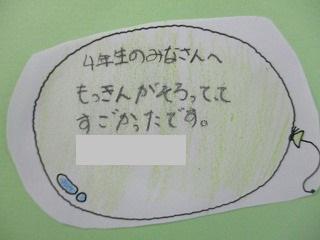 4年生のみなさんへ
もっきんがそろってて
すごかったです。